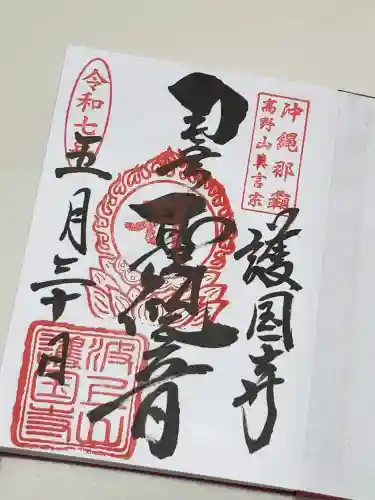 沖縄那覇
高野山真言宗
奉拝
聖観音
護国寺
令和七年
五月三十日
波上山
護国寺